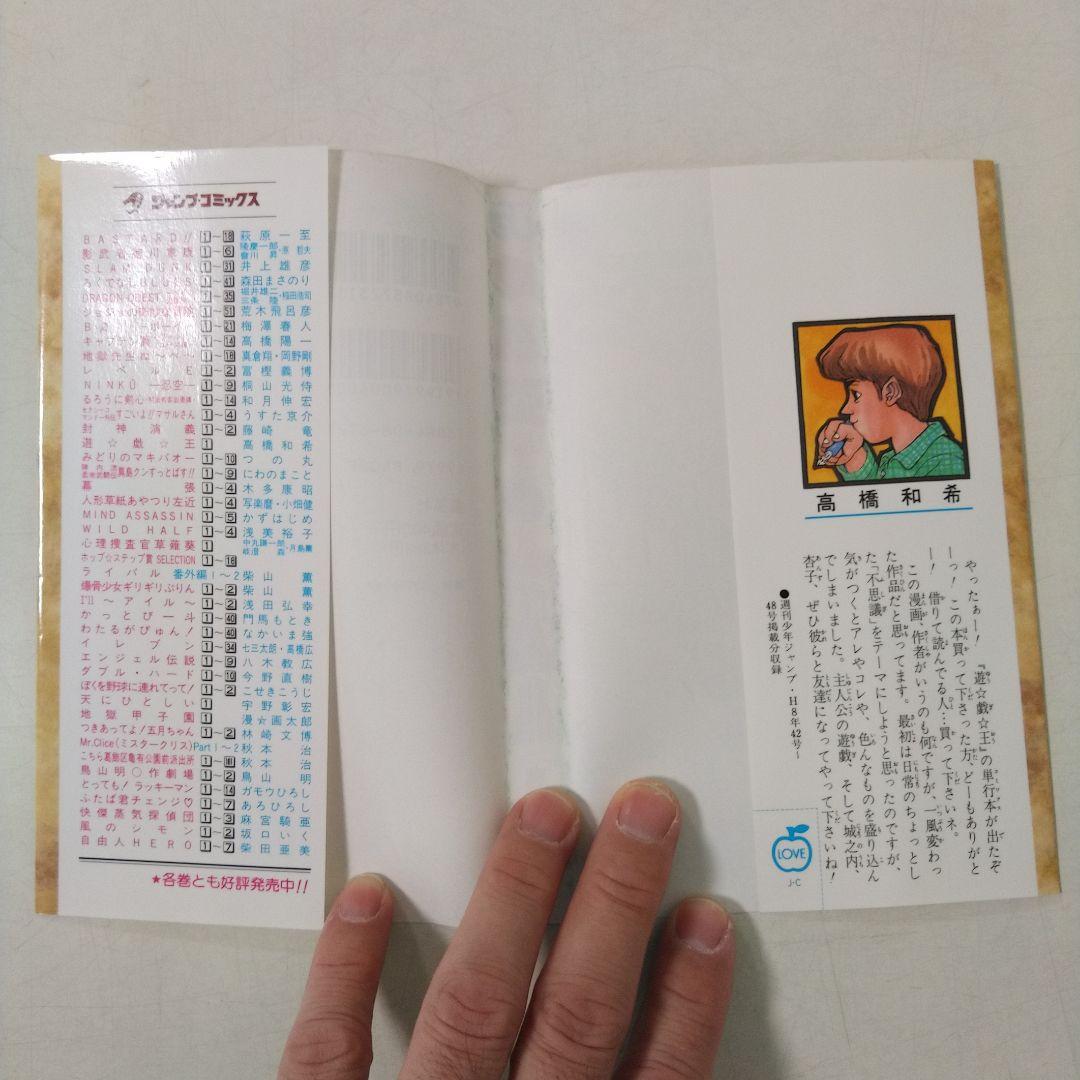 ジャンプ・コミックス
BASTARD!! 1〜18 萩原一至
影武者徳川家康 1〜6 隆慶一郎・原 哲夫 會川 昇
SLAM DUNK 1〜31 井上雄彦
ろくでなしBLUES 1〜41 森田まさのり
DRAGON QUEST 1〜35 堀井雄二・稲田浩司 三条 陸
ジョジョの奇妙な冒険 1〜51 荒木飛呂彦
1〜21 梅澤春人
キャプテン翼 1〜14 高橋陽一
地獄先生ぬ〜べ〜 1〜18 真倉翔・岡野剛
レベルE 1〜2 冨樫義博
NINKŪ ―忍空― 1〜9 桐山光侍
るろうに剣心 1〜14 和月伸宏
セクシーコマンドー外伝 すごいよ!!マサルさん 1〜4 うすた京介
封神演義 1〜2 藤崎 竜
遊☆戯☆王 1 高橋和希
みどりのマキバオー 1〜10 つの丸
陣内流柔術武闘伝 真島クンすっとばす!! 1〜9 にわのまこと
幕張 1〜4 木多康昭
人形草紙あやつり左近 1〜4 写楽麿・小畑健
MIND ASSASSIN 1〜5 かずはじめ
WILD HALF 1〜4 浅美裕子
心理捜査官草薙葵 1 中丸謙一郎・月島薫
ホップ☆ステップ賞 SELECTION 1〜18
ライバル 番外編1〜2 柴山 薫
爆骨少女ギリギリぷりん 1〜2 柴山 薫
I'll 〜アイル〜 1〜2 浅田弘幸
かっとび一斗 1〜40 門馬もとき
わたるがぴゅん! 1〜40 なかいま強
イレブン 1〜34 七三太朗・高橋広
エンジェル伝説 1〜9 八木教広
ダブル・ハード 1〜19 今野直樹
ぼくを野球に連れてって! 1〜2 こせきこうじ
天にひとしい 1 宇野彰宏
地獄甲子園 1 漫☆画太郎
つきあってよ!五月ちゃん 1〜2 林崎文博
Mr.Clice(ミスタークリス) Part1〜2 秋本 治
こちら葛飾区亀有公園前派出所 秋本 治
鳥山明〇作劇場 1〜2 鳥山 明
とっても!ラッキーマン 1〜14 ガモウひろし
ふたば君チェンジ♡ 1〜7 あろひろし
快傑蒸気探偵団 1〜3 麻宮騎亜
風のシモン 1〜2 坂口いく
自由人HERO 1〜7 柴田亜美
★各巻とも好評発売中!!
高橋和希
やったぁー! 『遊☆戯☆王』の単行本が出たぞ
ーっ! この本買って下さった方、どーもありがと
ー! 借りて読んでる人…買って下さいネ。
この漫画、作者がいうのも何ですが、一風変わっ
た作品だと思ってます。最初は日常のちょっとし
た「不思議」をテーマにしようと思ったのですが、
気がつくとアレやコレや、色んなものを盛り込ん
でしまいました。主人公の遊戯、そして城之内、
杏子、ぜひ彼らと友達になってやって下さいね!
●週刊少年ジャンプ・H8年42号〜
48号掲載分収録
LOVE
J・C